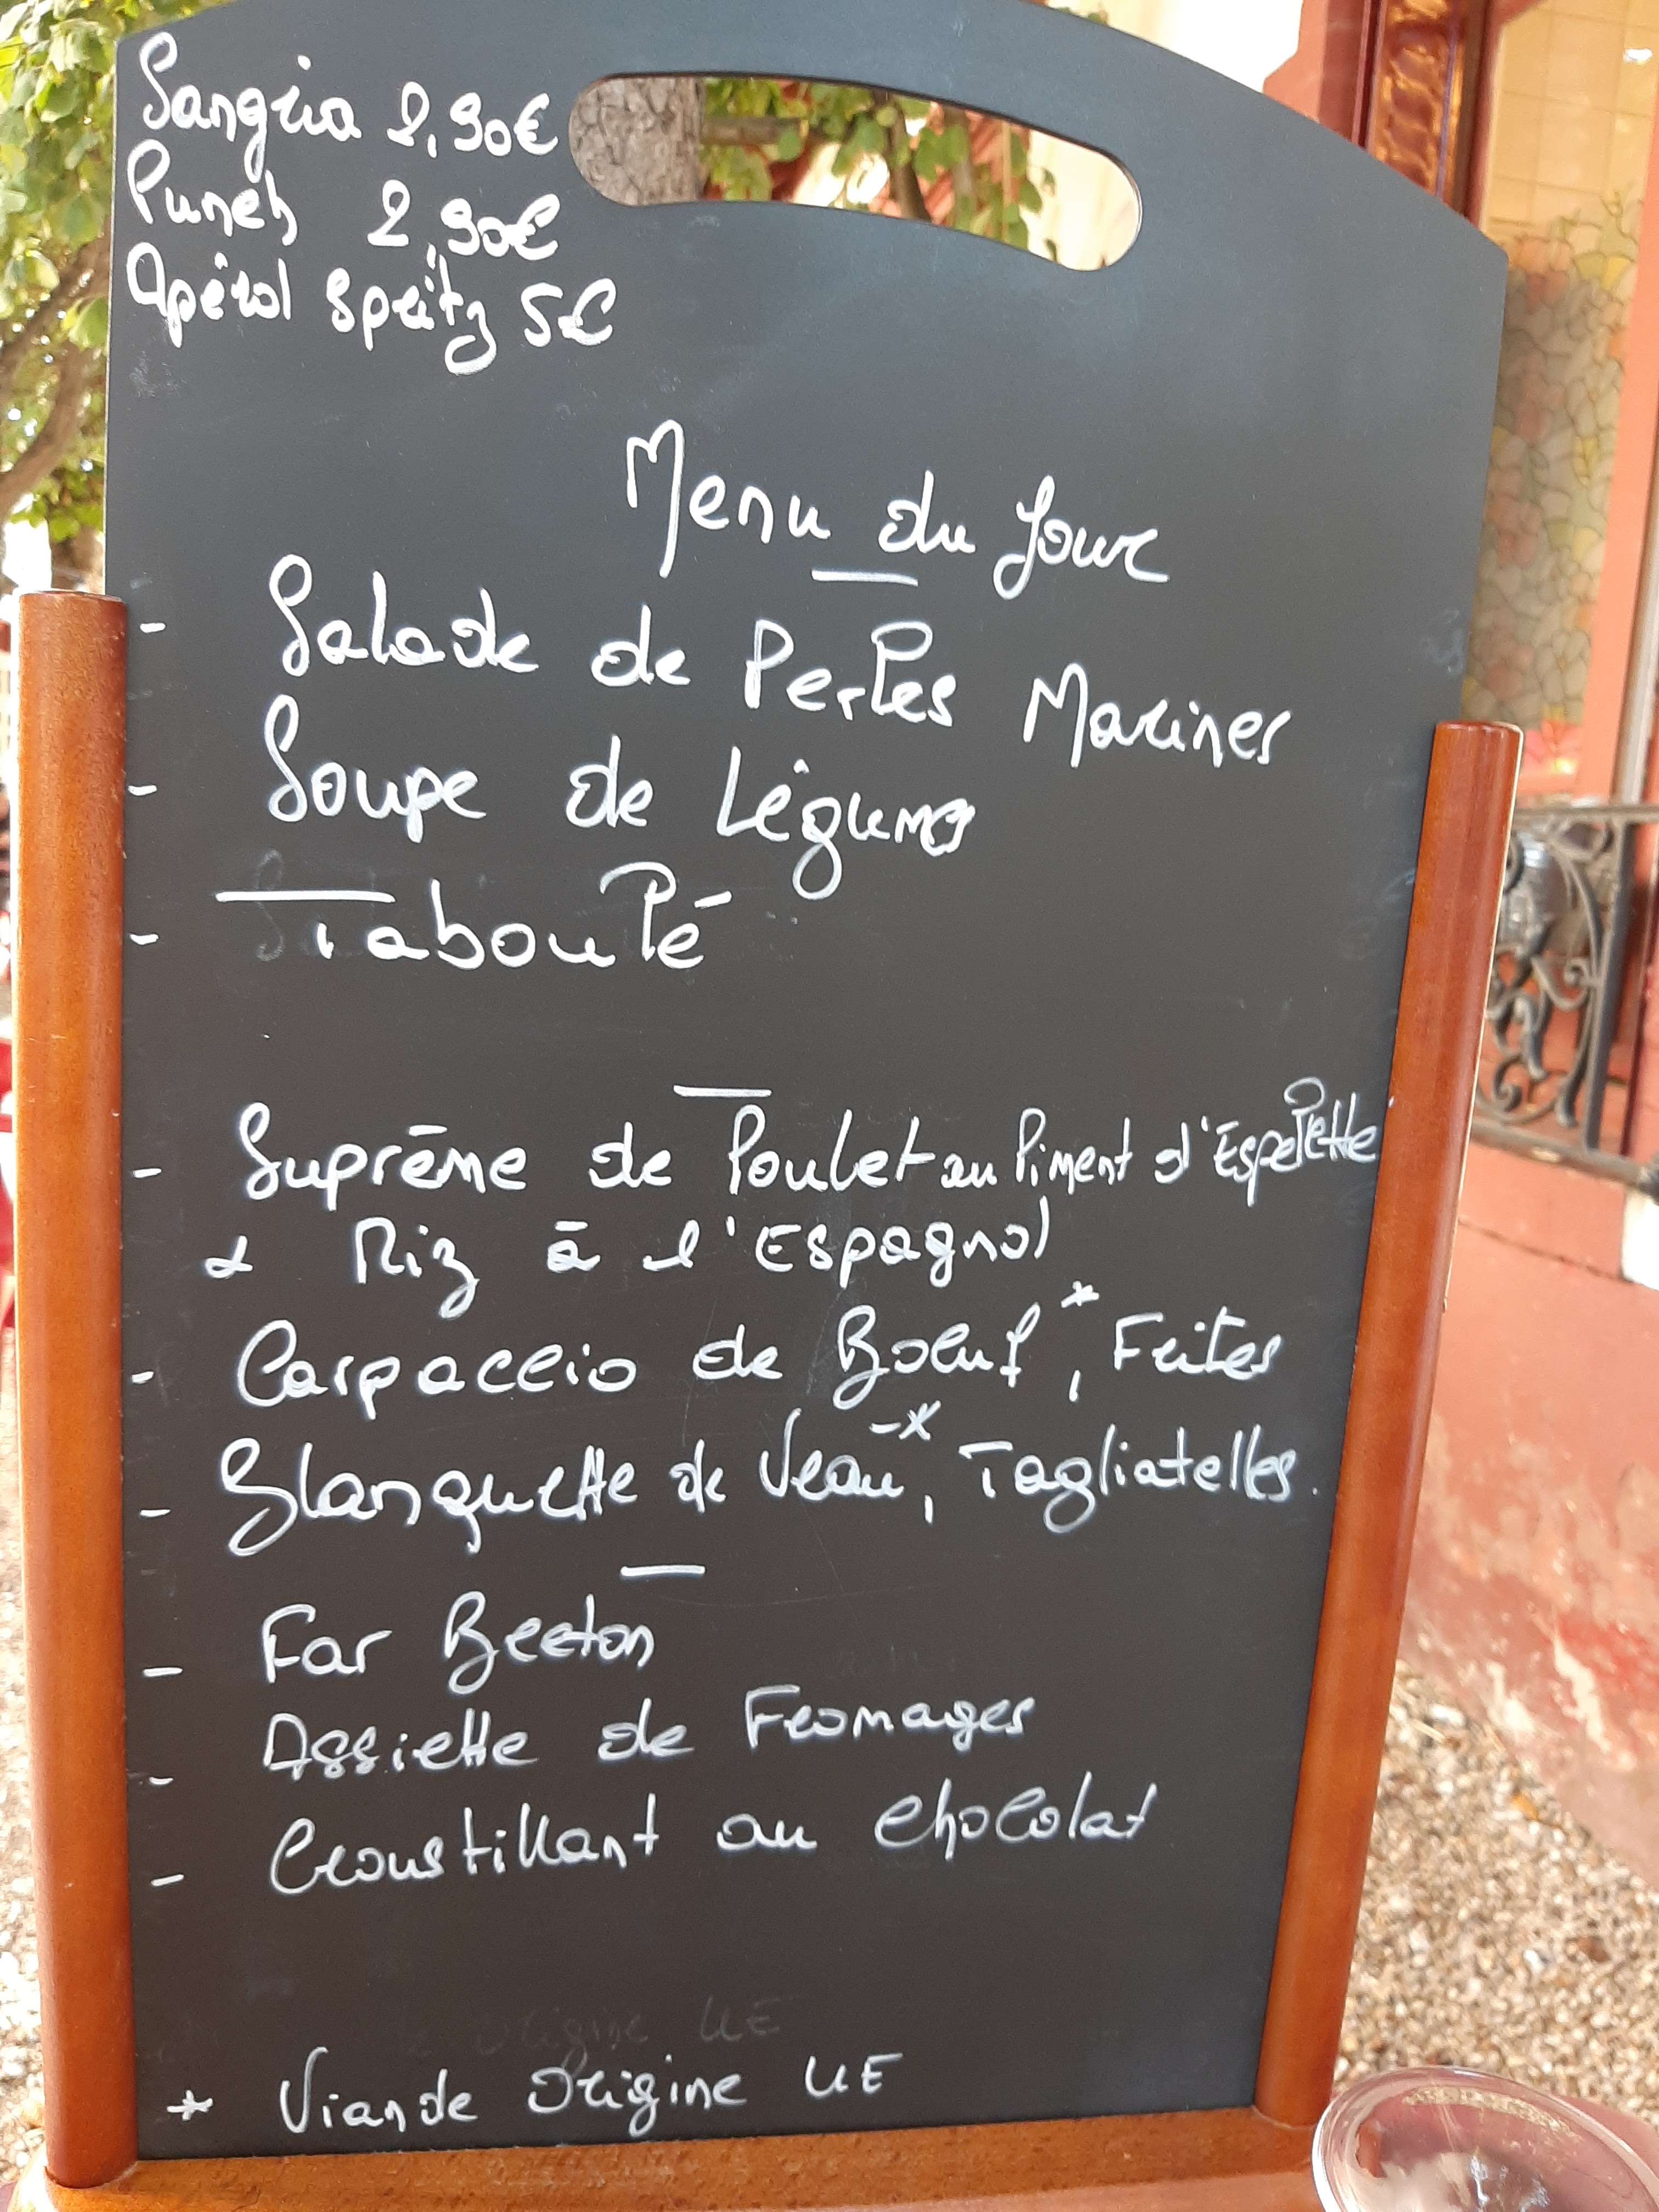 Sangria 2,90€
Punch 2,90€
Apérol Spritz 5€
Menu du Jour
- Salade de Perles Marines
- Soupe de Légumes
- Taboulé
- Suprême de Poulet au Piment d'Espelette
& Riz à l'Espagnol
- Carpaccio de Boeuf*, Frites
- Blanquette de Veau*, Tagliatelles.
- Far Breton
- Assiette de Fromages
- Croustillant au chocolat
* Viande Origine UE